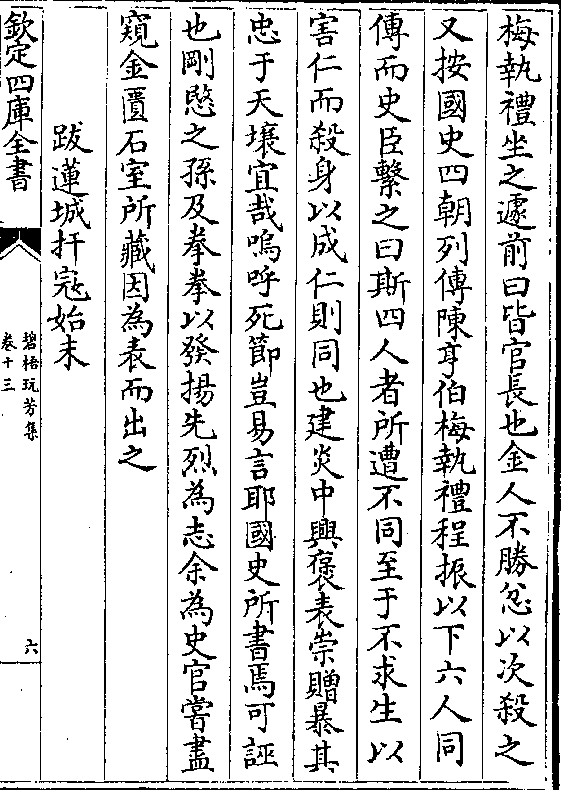 梅執禮坐之遽前曰皆官長也金人不勝忿以次殺之
又按國史四朝列傳陳亨伯梅執禮程振以下六人同
傳而史臣繫之曰斯四人者所遭不同至于不求生以
害仁而殺身以成仁則同也建炎中興褒表崇贈暴其
忠于天壤宜哉嗚呼死節豈易言耶國史所書焉可誣
也剛愍之孫及拳拳以發揚先烈為志余為史官嘗盡
窺金匱石室所藏因為表而出之
跋蓮城扞寇始末
欽定四庫全書
碧梧玩芳集
卷十三
六